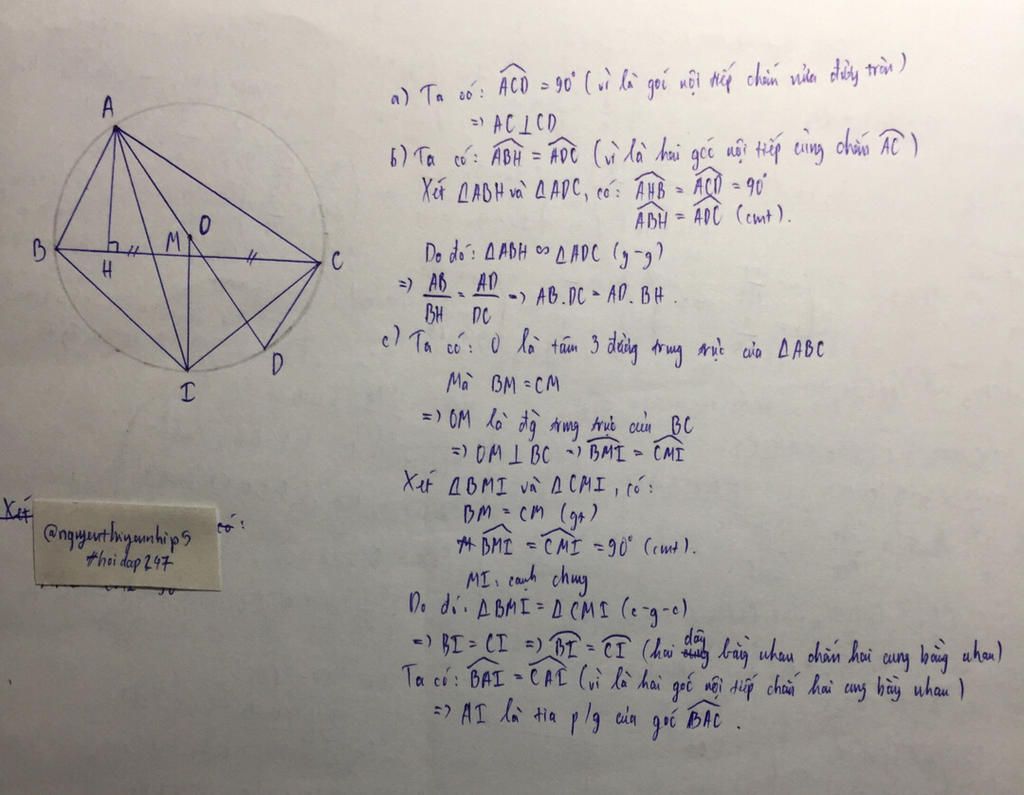 A
B
H
M
O
C
I
D
a) Ta có: ACD = 90° (vì là góc nội tiếp chắn nửa đường tròn)
=> AC⊥CD
b) Ta có: ABH = ADC (vì là hai góc nội tiếp cùng chắn AC)
Xét ΔABH và ΔADC, có: AHB = ACD = 90°
ABH = ADC (cmt).
Do đó: ΔABH ∽ ΔADC (g-g)
=> AB/BH = AD/DC => AB.DC = AD.BH.
c) Ta có: O là tâm 3 đường trung trực của ΔABC
Mà BM = CM
=> OM là đg trung trực của BC
=> OM ⊥ BC => BMI = CMI
Xét ΔBMI và ΔCMI, có:
BM = CM (gt)
BMI = CMI = 90° (cmt).
MI: cạnh chung
Do đó: ΔBMI = ΔCMI (c-g-c)
=> BI = CI => BI = CI (hai dây bằng nhau chắn hai cung bằng nhau)
Ta có: BAI = CAI (vì là hai góc nội tiếp chắn hai cung bằng nhau)
=> AI là tia p/g của góc BAC.
Xét
có:
@nguyenthiyennhi95
#hoidap247